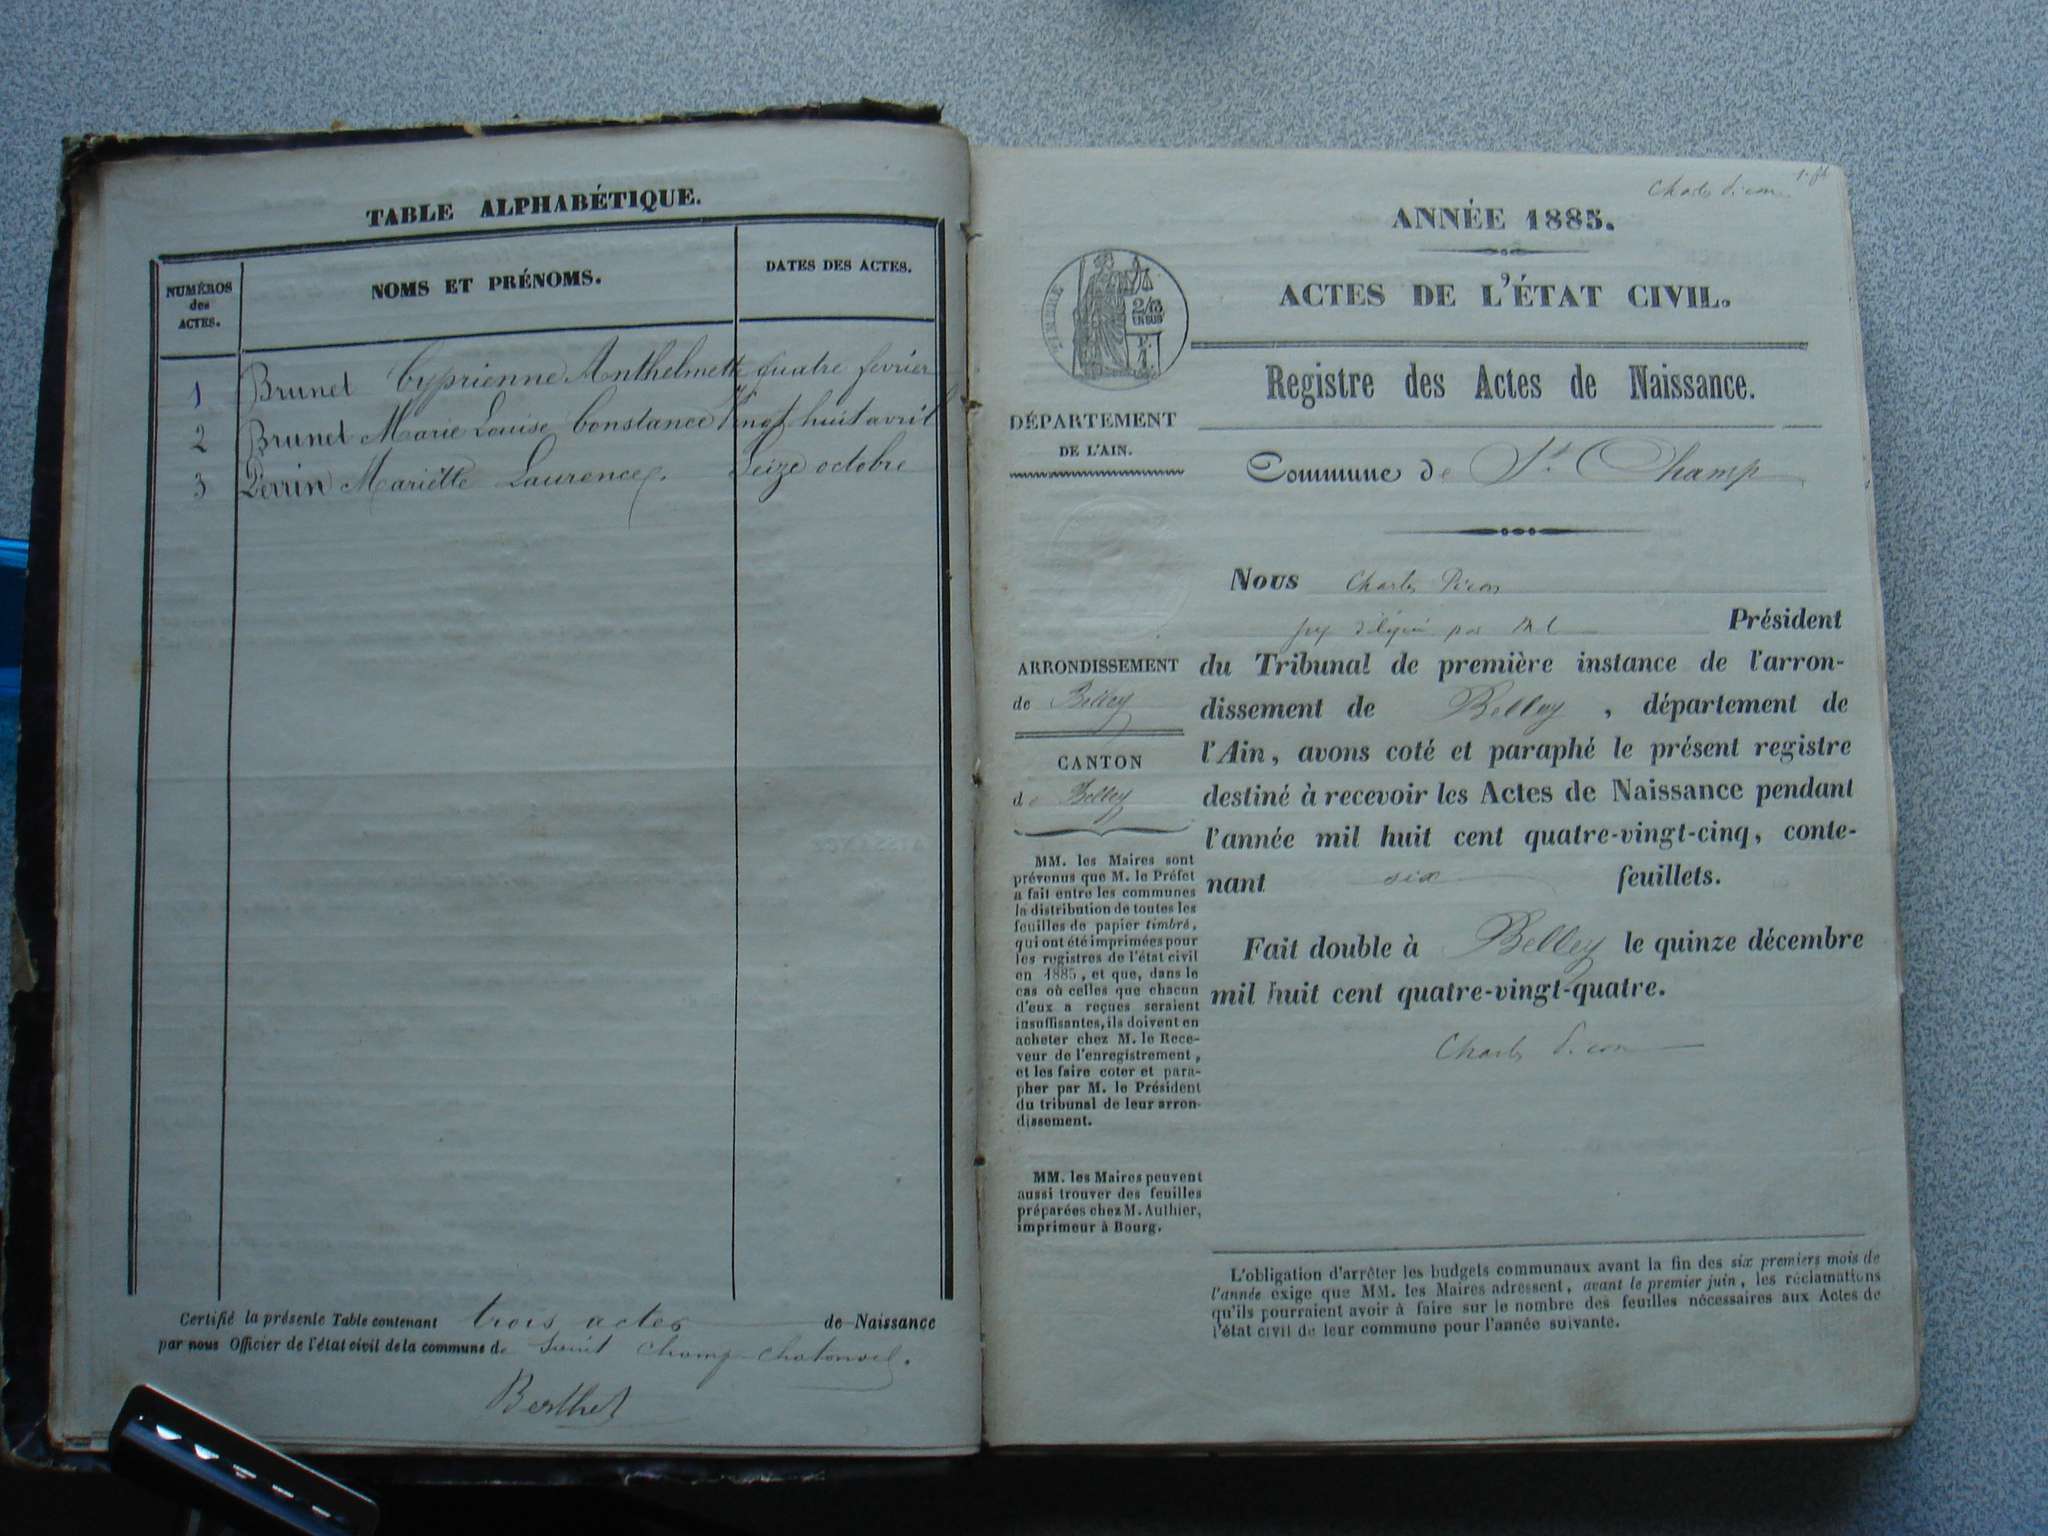 TABLE ALPHABÉTIQUE.
NUMÉROS
des
ACTES.
NOMS ET PRÉNOMS.
DATES DES ACTES.
1 Brunet Cyprienne Anthelmette quatre fevrier
2 Brunet Marie Louise Constance Vingt huit avril
3 Perrin Mariette Laurence Seize octobre
Certifié la présente Table contenant trois actes de Naissance
par nous Officier de l'état civil de la commune de Saint Champ-Chatonod.
Berthet
Charles Picon
ANNÉE 1885.
ACTES DE L'ÉTAT CIVIL.
TIMBRE
Registre des Actes de Naissance.
DÉPARTEMENT
DE L'AIN.
Commune de St. Champ
Nous Charles Picon
par Président
ARRONDISSEMENT
de Belley
CANTON
de Belley
du Tribunal de première instance de l'arron-
dissement de Belley, département de
l'Ain, avons coté et paraphé le présent registre
destiné à recevoir les Actes de Naissance pendant
l'année mil huit cent quatre-vingt-cinq, conte-
nant six feuillets.
Fait double à Belley le quinze décembre
mil huit cent quatre-vingt-quatre.
Charles Picon
MM. les Maires sont
prévenus que M. le Préfet
a fait entre les communes
la distribution de toutes les
feuilles de papier timbré,
qui ont été imprimées pour
les registres de l'état civil
en 1885, et que, dans le
cas où celles que chacun
d'eux a reçues seraient
insuffisantes, ils doivent en
acheter chez M. le Rece-
veur de l'enregistrement,
et les faire coter et para-
pher par M. le Président
du tribunal de leur arron-
dissement.
MM. les Maires peuvent
aussi trouver des feuilles
préparées chez M. Authier,
imprimeur à Bourg.
L'obligation d'arrêter les budgets communaux avant la fin des six premiers mois de
l'année exige que MM. les Maires adressent, avant le premier juin, les réclamations
qu'ils pourraient avoir à faire sur le nombre des feuilles nécessaires aux Actes de
l'état civil de leur commune pour l'année suivante.